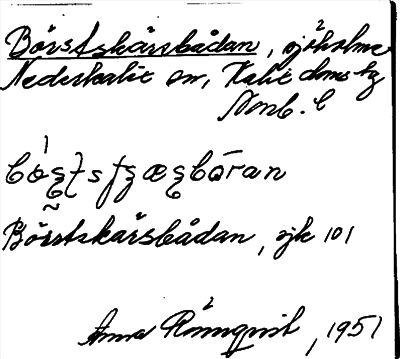 Börstskärsbådan, sjöholme
Nederkalix sn, Kalix doms hg
Norrb. l
Börstskärsbådan, sjk 101
Anna Rönnqvist, 1951